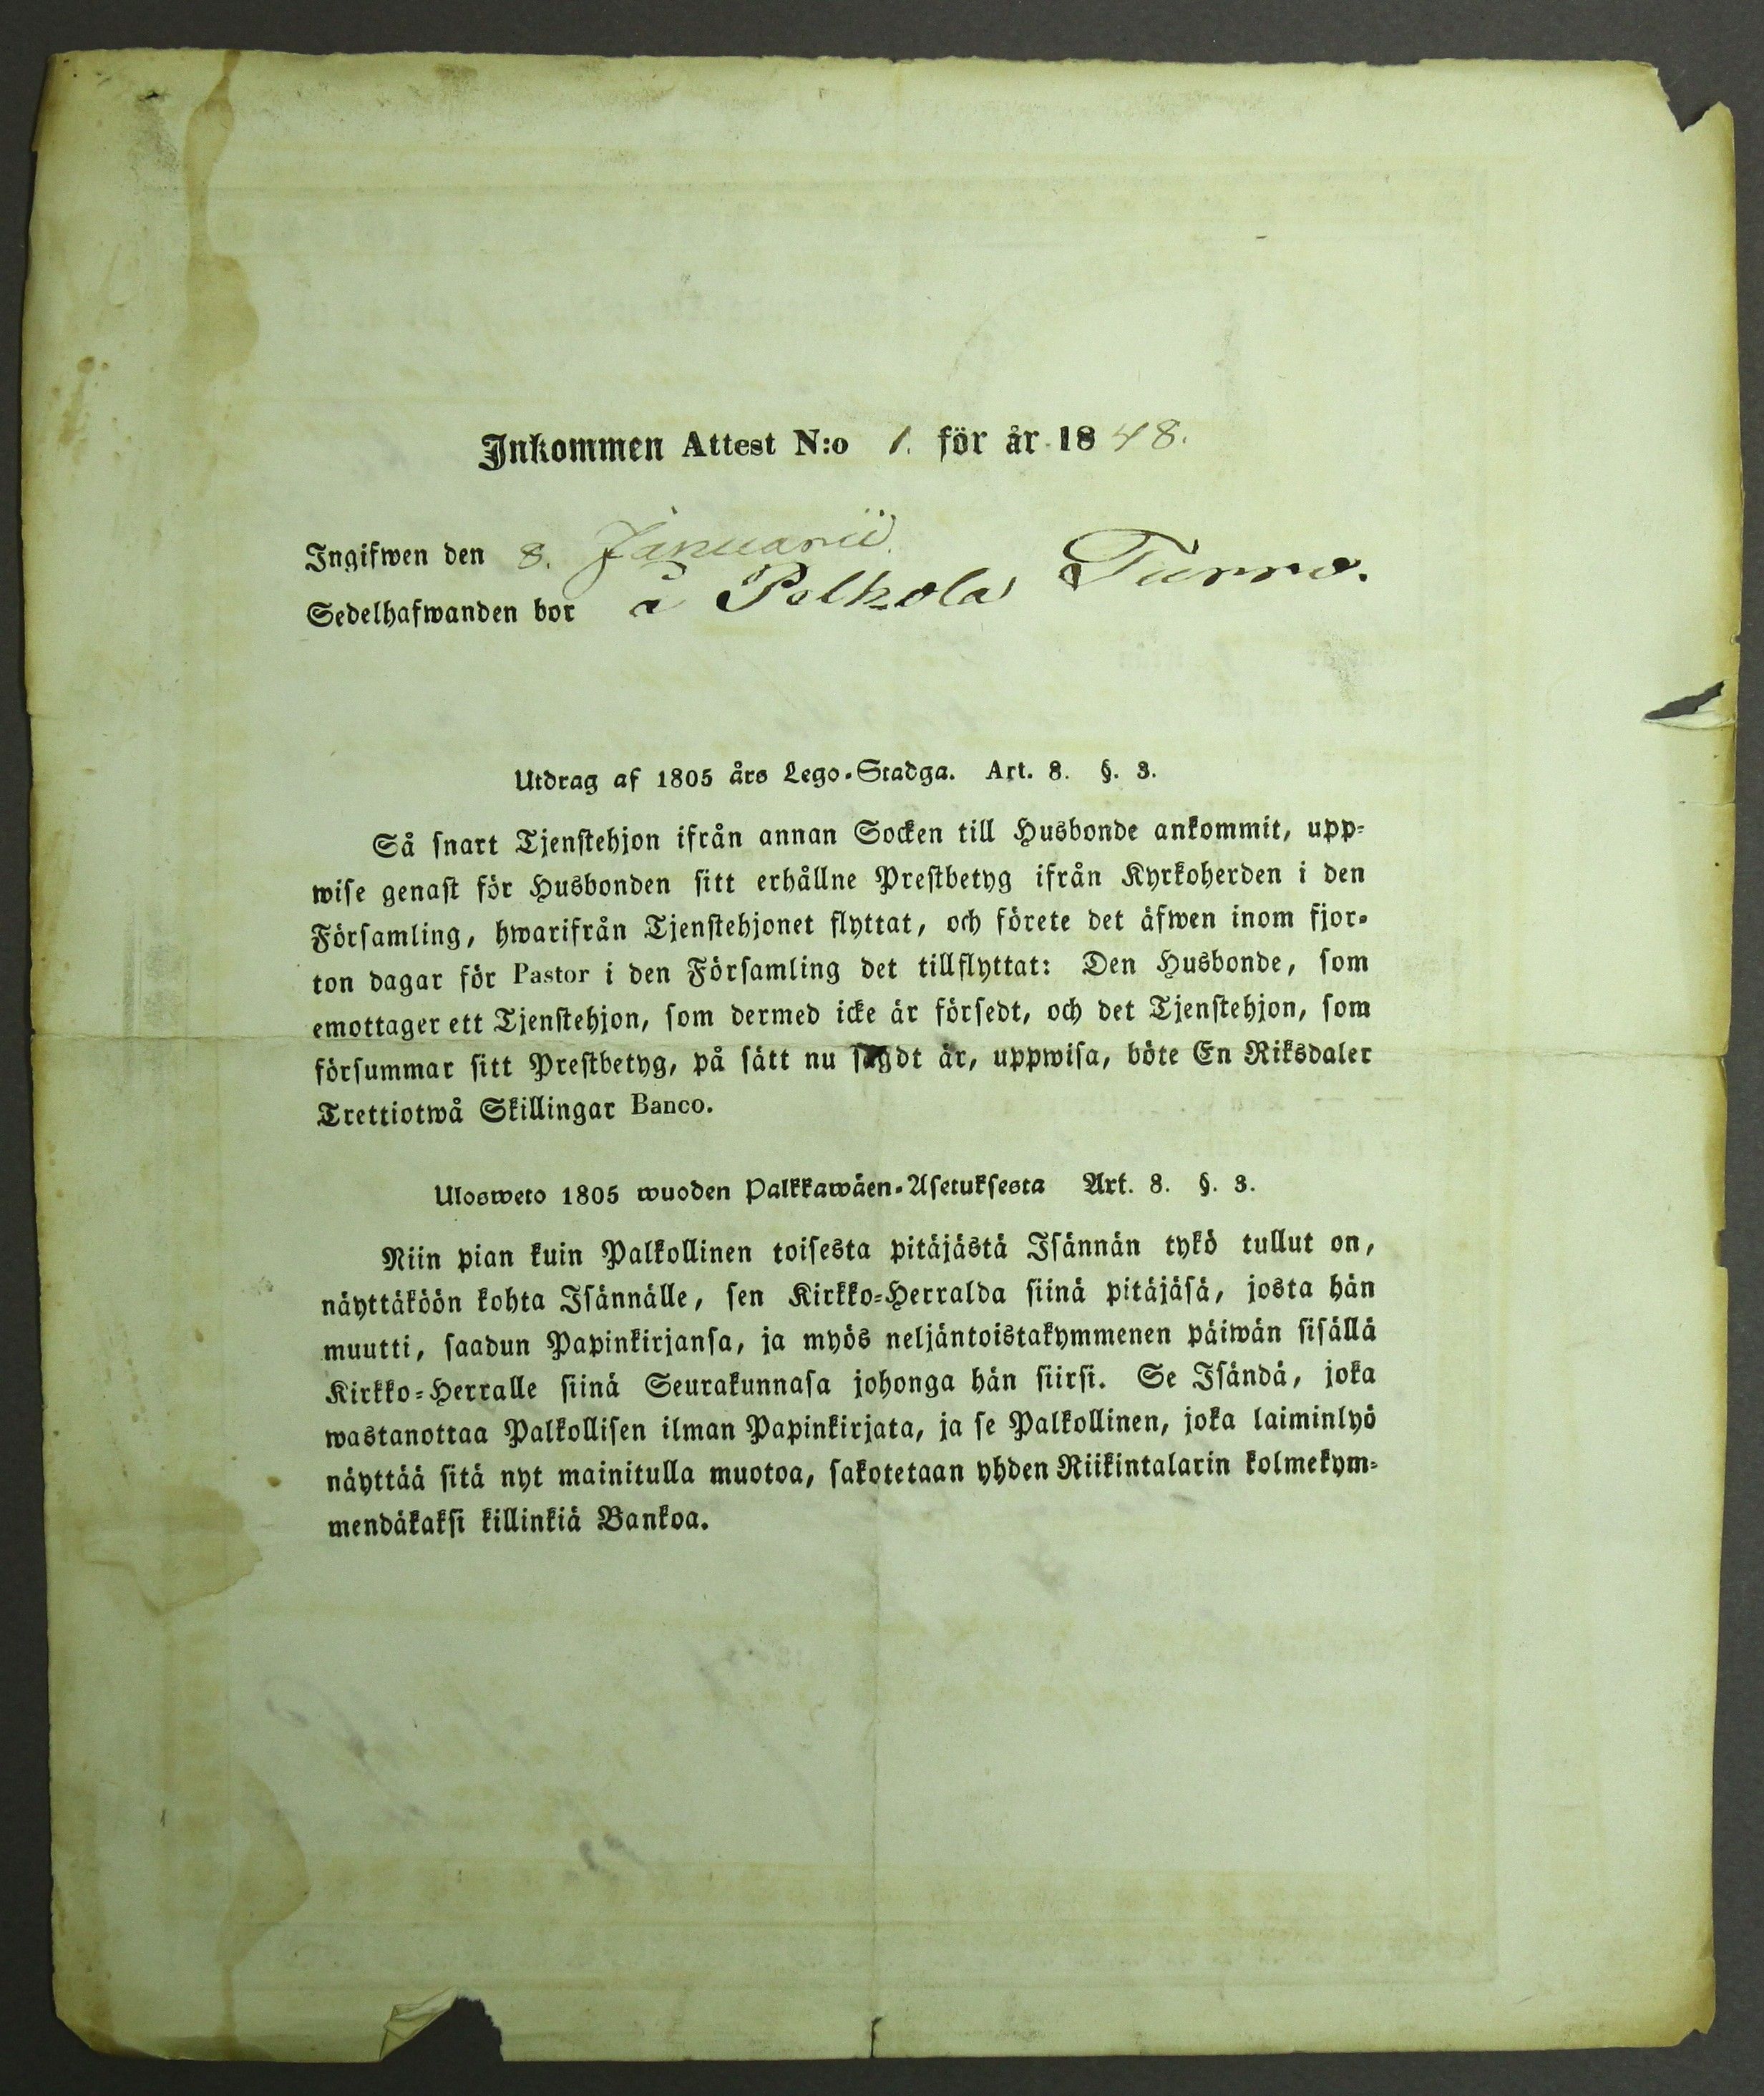 Inkommen Attest N:o 1. för år 1848.
Ingifwen den 8. Januarii.
Sedelhafwanden bor å Pelhola Turro.
Utdrag af 1805 års Lego-Stadga. Art. 8. §. 3.
Så snart Tjenstehjon ifrån annan Socken till Husbonde ankommit, upp-
wise genast för Husbonden sitt erhållne Prestbetyg ifrån Kyrkoherden i den
Församling, hwarifrån Tjenstehjonet flyttat, och förete det äfwen inom fjor-
ton dagar för Pastor i den Församling det tillflyttat: Den Husbonde, som
emottager ett Tjenstehjon, som dermed icke är försedt, och det Tjenstehjon, som
försummar sitt Prestbetyg, på sätt nu sagdt är, uppwisa, böte En Riksdaler
Trettiotwå Skillingar Banco.
Ulosweto 1805 wuoden Palkkawäen-Asetuksesta Art. 8. §. 3.
Niin pian kuin Palkollinen toisesta pitäjästä Isännän tykö tullut on,
näyttäköön kohta Isännälle, sen Kirkko-Herralda siinä pitäjäsä, josta hän
muutti, saadun Papinkirjansa, ja myös neljäntoistakymmenen päiwän sisällä
Kirkko-Herralle siinä Seurakunnasa johonga hän siirsi. Se Isändä, joka
wastanottaa Palkollisen ilman Papinkirjata, ja se Palkollinen, joka laiminlyö
näyttää sitä nyt mainitulla muotoa, sakotetaan yhden Riikintalarin kolmekym-
mendäkaksi killinkiä Bankoa.